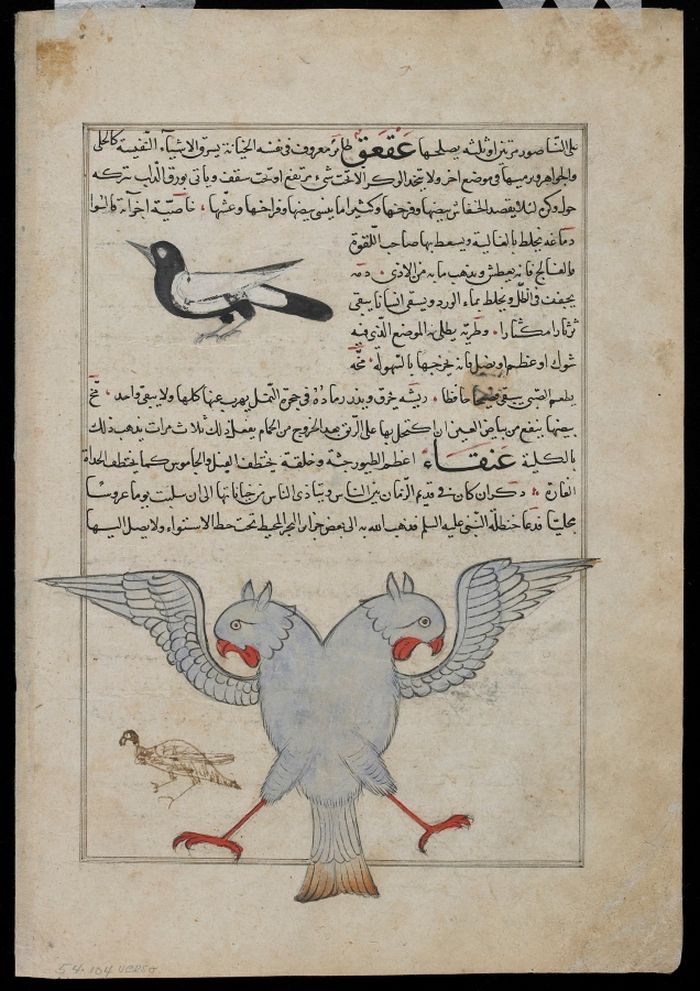 على الناصور مرتين او ثلثة يصلحها عقعق طائر معروف في فنه الخيانة يسرق الاشياء النفيسة كالحلى
والجواهر ويرميها في موضع اخر ولا يتخذ الوكر الا تحت شىء مرتفع او تحت سقف وياتى بورق الدلب يتركه
حول وكره لئلا يقصد الخفاش بيضها وفرخها وكثيرا ما ينسى بيضها وفراخها وعشها خاصية اجزائه قالوا
دماغه يخلط بالغالية ويسعط بها صاحب اللقوة
والفالج فانه يعطش ويذهب ما به من الاذى دمه
يجفف فى الظل ويخلط بماء الورد ويسقى انسانا يبقى
ثرثارا مكثارا وطريه يطلى به الموضع الذى فيه
شوك او عظم او نصل فانه يخرجها بالسهولة مخه
يطعم الصبى يبقى فصيحا حافظا ريشه يحرق ويذر رماده فى حجرة النمل يهرب عنها كلها ولا يبقى واحد مخ
بيضها ينفع من بياض العين ان اكتحل بها على الريق بعد الخروج من الحمام يفعل ذلك ثلاث مرات يذهب ذلك
بالكلية عنقاء اعظم الطيور جثة وخلقة يختطف الفيل والجاموس كما يختطف الحداة
الفارة ذكر ان كان فى قديم الزمان بين الناس ويتاذى الناس من جناياتها الى ان سلبت يوما عروسا
مجليا فدعا حنظلة النبى عليه السلم فذهب الله به الى بعض جزاير البحر المحيط تحت خط الاستواء ولا يصل اليها
54.104 verso